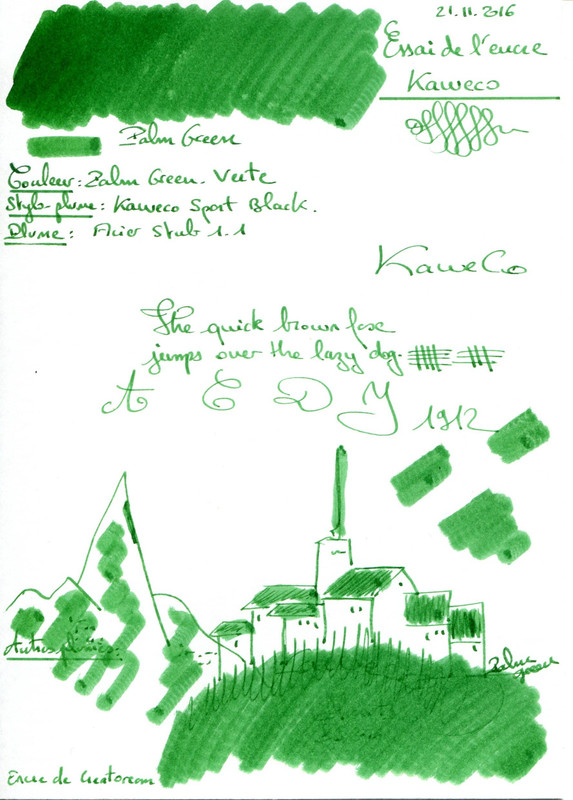 21.11.2016
Essai de l'encre
Kaweco
Palm Green
Couleur: Palm Green. Verte
Stylo-plume: Kaweco Sport Black.
Plume: Acier Stub 1.1
KaweCo
The quick brown fox
jumps over the lazy dog.
A C D Y
1912
Autres
Palm
Green
Encre de